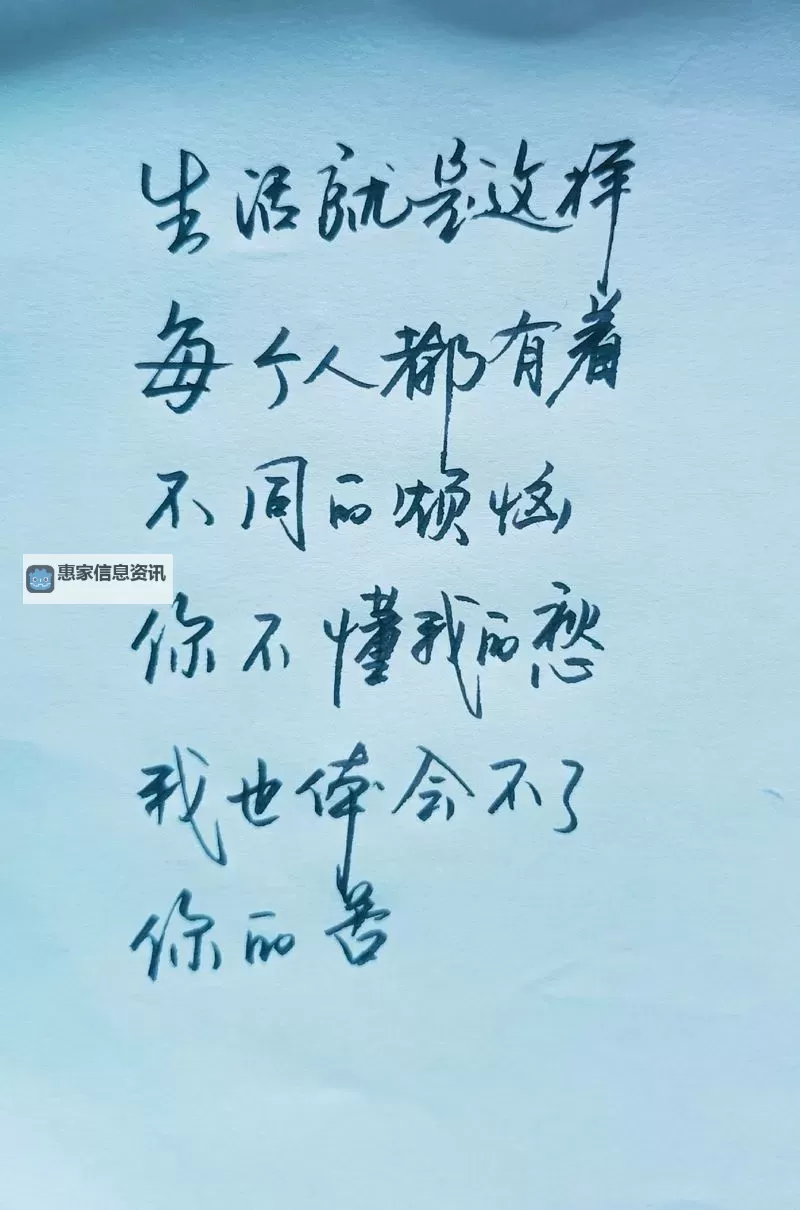 生活就是这样
每个人都有着
不同的烦恼
惠家信息资讯
你不懂我的愁
我也体会不了
你的苦